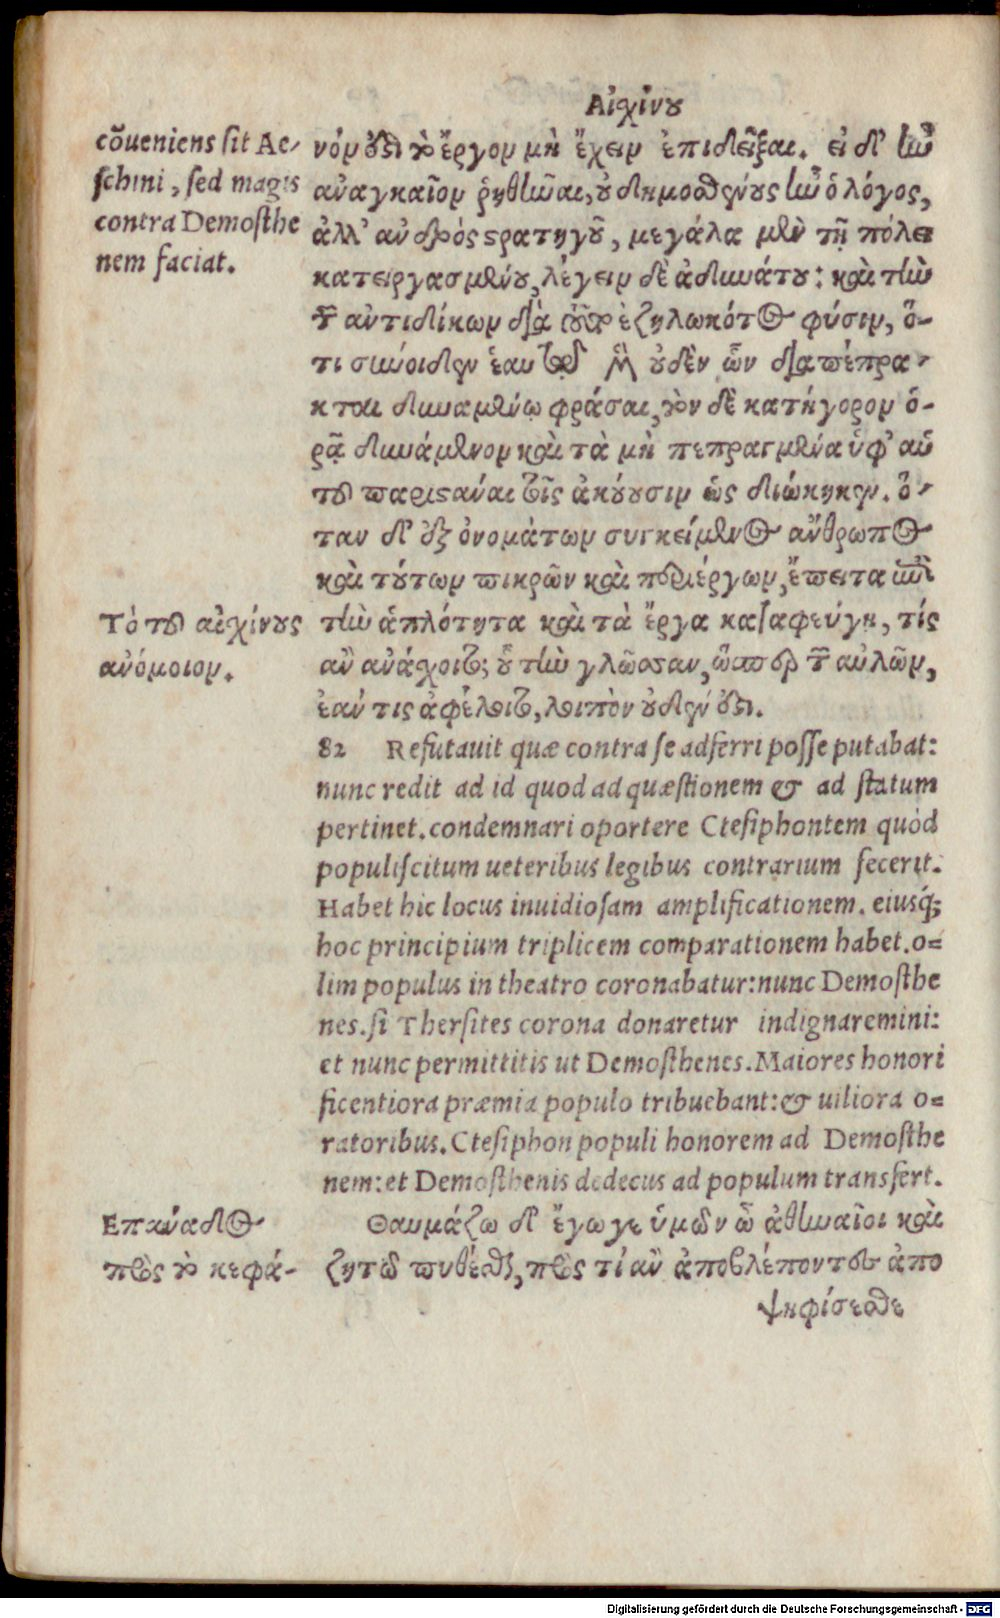 Αἰχίνου
cõueniens sit Ae-
schini, sed magis
contra Demosthe
nem faciat.
νόν ὅτι τὸ ἔργον μὴ ἔχειν ἐπιδεῖξαι. εἰ δ' ἦν
ἀναγκαῖον ῥηθῆναι, οὐ δημοσθένους ἦν ὁ λόγος,
ἀλλ' ἀνδρὸς στρατηγοῦ, μεγάλα μὲν τῇ πόλει
κατειργασμένου, λέγειν δὲ ἀδυνάτου: καὶ τὴν
τῶν ἀντιδίκων διὰ τοῦτο ἐζηλωκότος φύσιν, ὅ-
τι σύνοιδεν ἑαυτῷ μὲν οὐδὲν ὧν διαπέπρα-
κται δυναμένῳ φράσαι, τὸν δὲ κατήγορον ὁ-
ρᾷ δυνάμενον καὶ τὰ μὴ πεπραγμένα ὑφ' αὑ
τοῦ παριστάναι τοῖς ἀκούουσιν ὡς διώκηκεν. ὅ-
ταν δ' ἐξ ὀνομάτων συγκείμενος ἄνθρωπος
καὶ τούτων πικρῶν καὶ περιέργων, ἔπειτα ἐπὶ
Τὸ τοῦ αἰχίνους
ἀνόμοιον.
τὴν ἁπλότητα καὶ τὰ ἔργα καταφεύγῃ, τίς
ἂν ἀνάσχοιτο; οὗ τὴν γλῶσσαν, ὥσπερ τῶν αὐλῶν,
ἐάν τις ἀφέλοιτο, λοιπὸν οὐδέν ἐστι.
82 Refutauit quæ contra se adferri posse putabat:
nunc redit ad id quod ad quæstionem & ad statum
pertinet. condemnari oportere Ctesiphontem quòd
populiscitum ueteribus legibus contrarium fecerit.
Habet hic locus inuidiosam amplificationem. eiusq́;
hoc principium triplicem comparationem habet. o=
lim populus in theatro coronabatur: nunc Demosthe
nes. si Thersites corona donaretur indignaremini:
et nunc permittitis ut Demosthenes. Maiores honori
ficentiora præmia populo tribuebant: & uiliora o=
ratoribus. Ctesiphon populi honorem ad Demosthe
nem: et Demosthenis dedecus ad populum transfert.
Επάνοδος
πρὸς τὸ κεφά-
Θαυμάζω δ' ἔγωγε ὑμῶν ὦ ἀθηναῖοι καὶ
ζητῶ πυθέσθαι, πρὸς τί ἂν ἀποβλέποντες ἀπο
ψηφίσεσθε
Digitalisierung gefördert durch die Deutsche Forschungsgemeinschaft - DFG